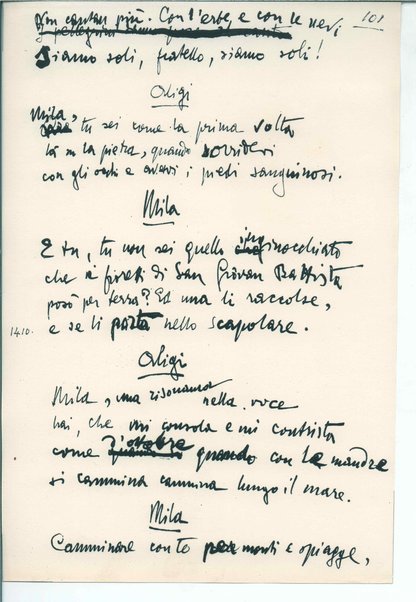 101
non cantan più. Con l'erbe, e con le nevi
Siamo soli, fratello, siamo soli!
Aligi
Mila, tu sei come la prima volta
là su la pietra, quando sorridevi
con gli occhi e avevi i piedi sanguinosi.
Mila
E tu, tu non sei quello inginocchiato
che i fioretti di San Giovan Battista
posò per terra? Ed una li raccolse,
1410.
e se li porta nello scapolare.
Aligi
Mila, una risonanza nella voce
hai, che mi consola e mi contrista
come d'ottobre quando con le mandre
si cammina cammina lungo il mare.
Mila
Camminare con te per monti e spiagge,